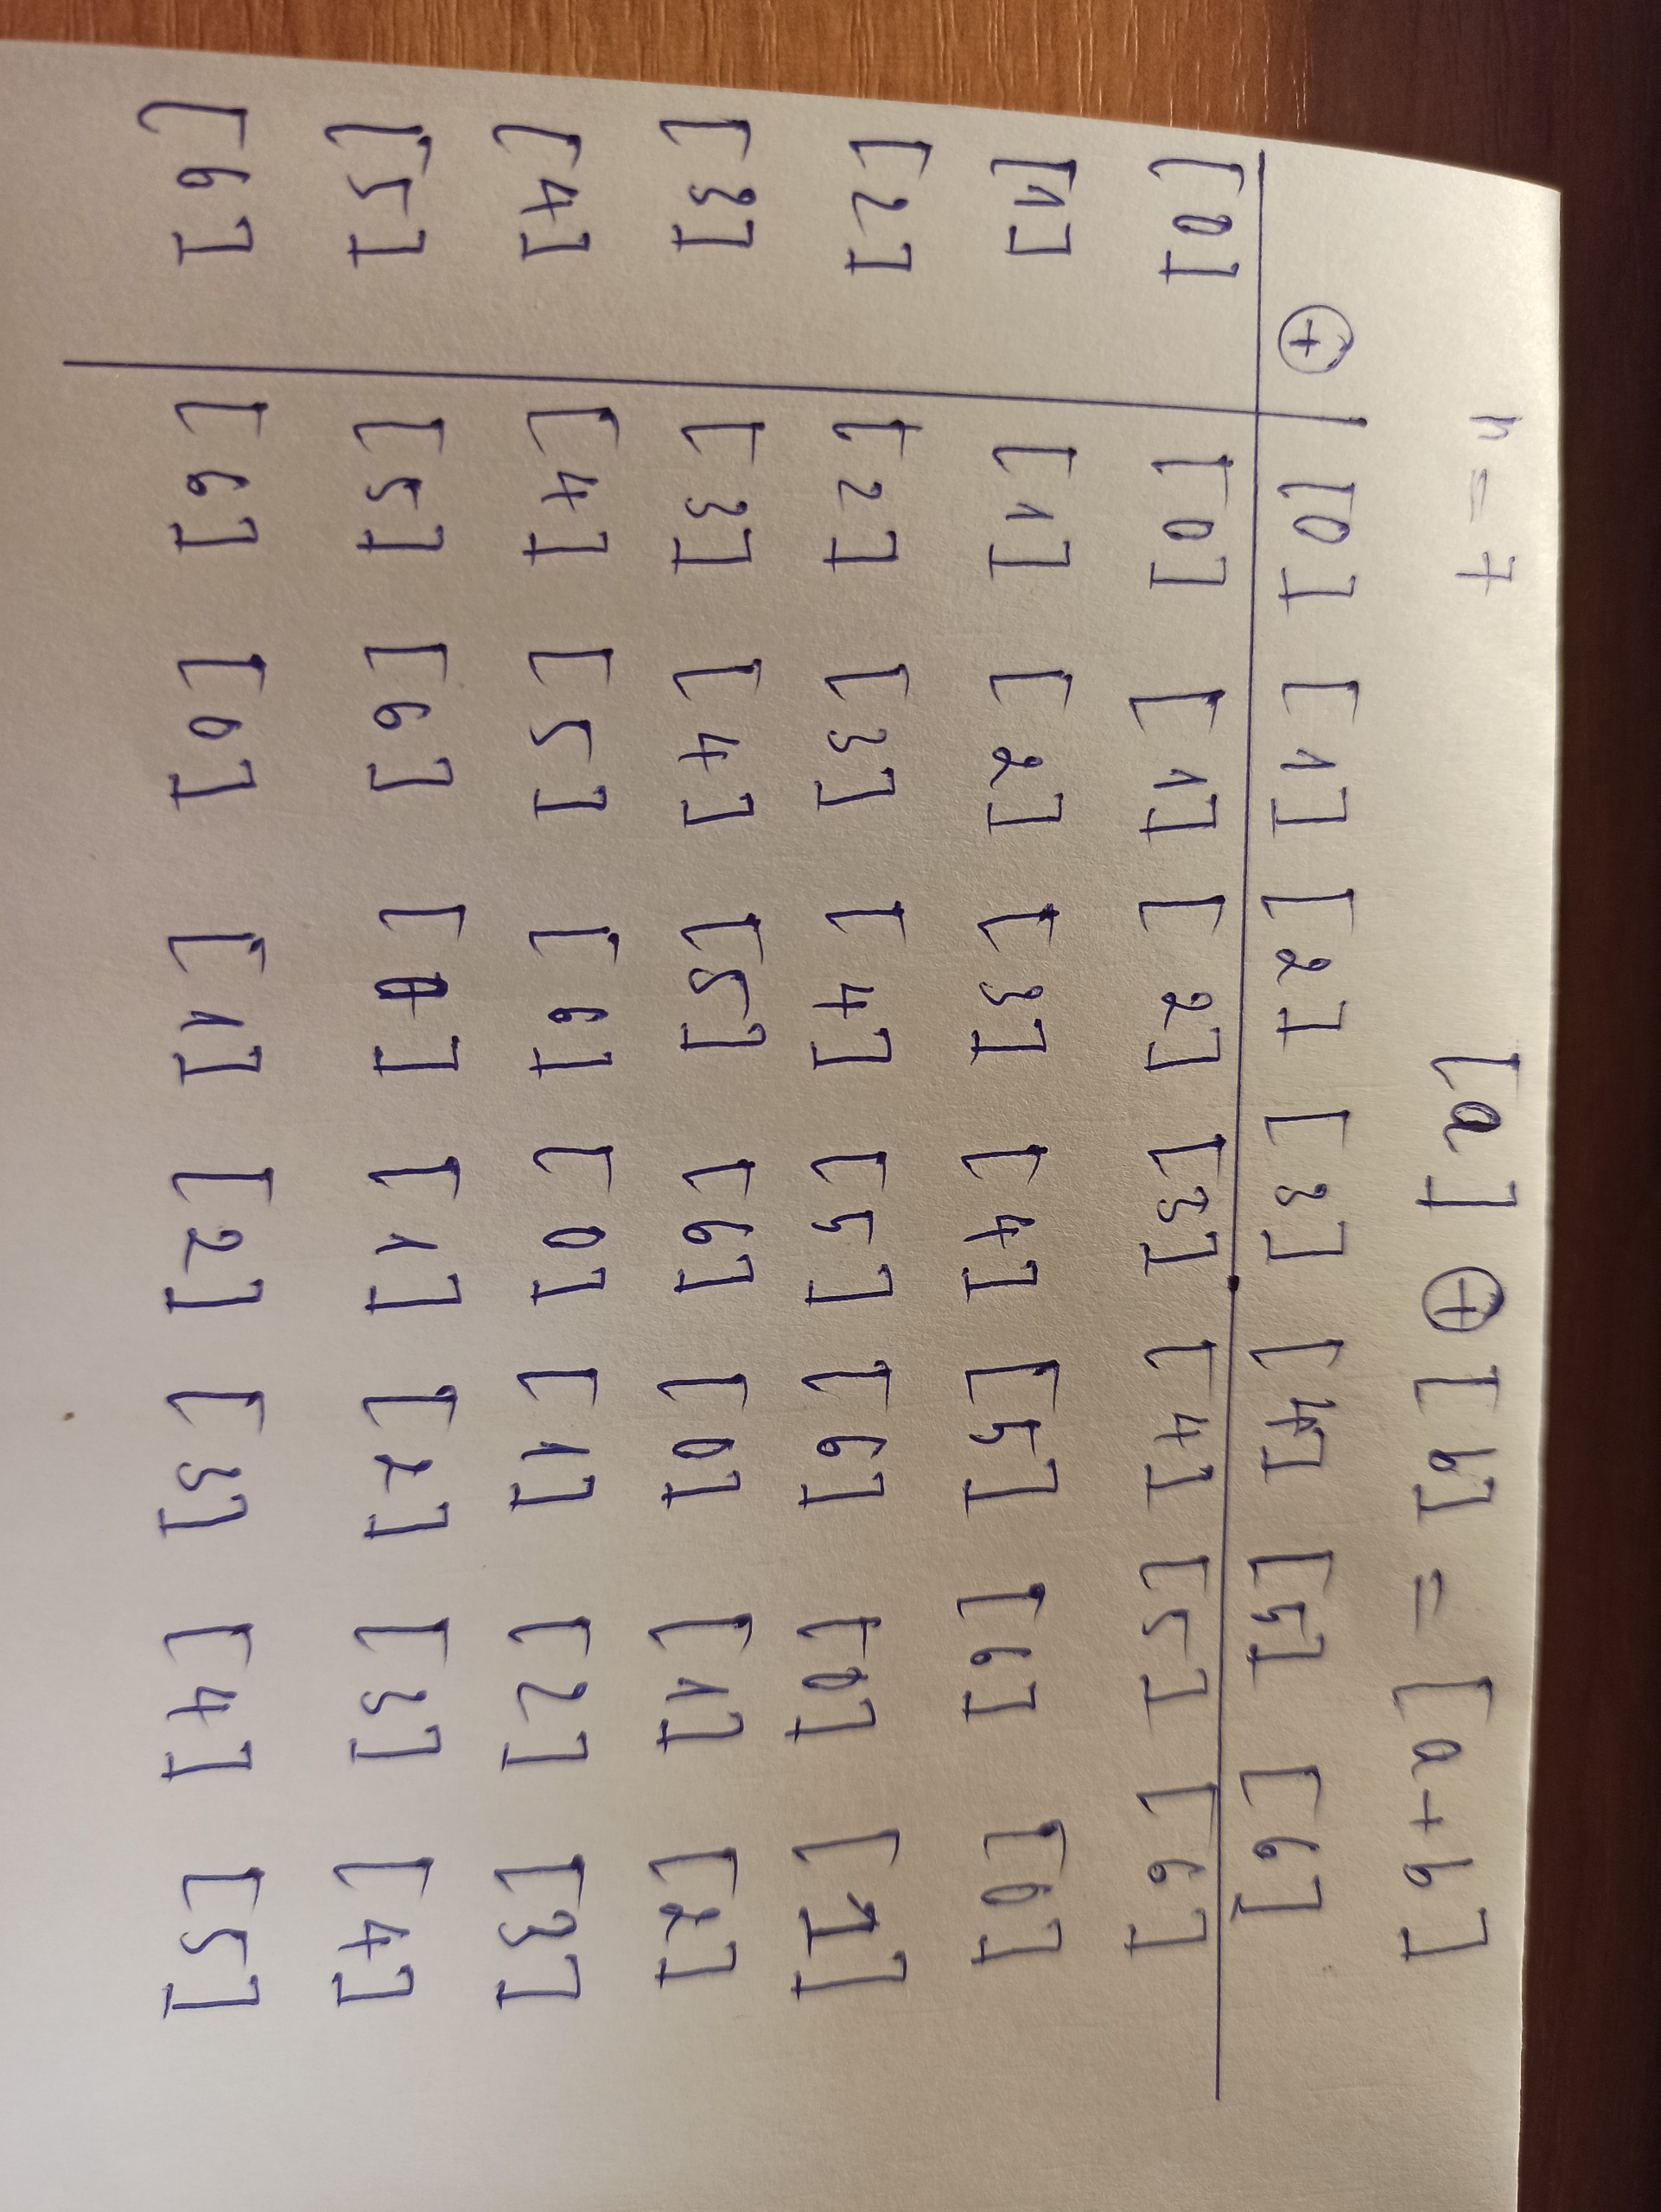 n = 7 [a] ⊕ [b] = [a+b]
⊕ | [0] [1] [2] [3] [4] [5] [6]
[0] [0] [1] [2] [3] [4] [5] [6]
[1] [1] [2] [3] [4] [5] [6] [0]
[2] [2] [3] [4] [5] [6] [0] [1]
[3] [3] [4] [5] [6] [0] [1] [2]
[4] [4] [5] [6] [0] [1] [2] [3]
[5] [5] [6] [0] [1] [2] [3] [4]
[6] [6] [0] [1] [2] [3] [4] [5]